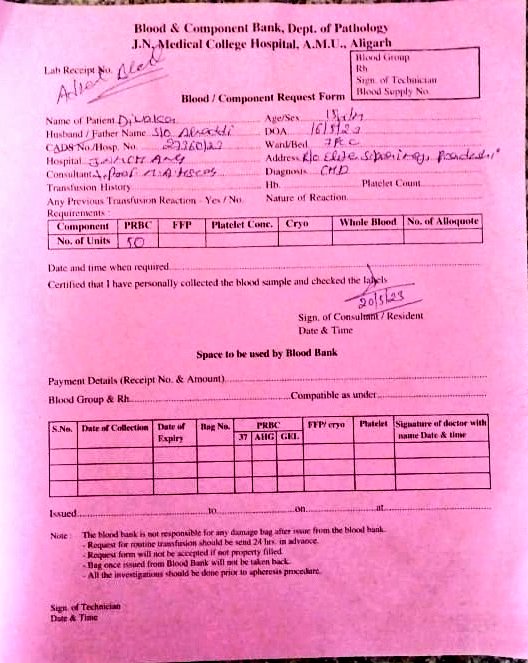 Blood & Component Bank, Dept. of Pathology
J.N. Medical College Hospital, A.M.U., Aligarh
Lab Receipt No.
Blood Group
Rh
Sign. of Technician
Blood Supply No.
Blood / Component Request Form
Name of Patient Diwakar Age/Sex
Husband / Father Name S/O DOA 16/5/23
CADS No./Hosp. No. 27360/23 Ward/Bed
Hospital JNMCH AMU Address R/o
Consultant Prof Diagnosis CHD
Transfusion History Hb. Platelet Count
Any Previous Transfusion Reaction - Yes / No. Nature of Reaction
Requirements :
Component PRBC FFP Platelet Conc. Cryo Whole Blood No. of Alloquote
No. of Units 50
Date and time when required
Certified that I have personally collected the blood sample and checked the labels
20/5/23
Sign. of Consultant / Resident
Date & Time
Space to be used by Blood Bank
Payment Details (Receipt No. & Amount)
Blood Group & Rh Compatible as under
S.No. Date of Collection Date of Expiry Bag No. PRBC FFP/ cryo Platelet Signature of doctor with name Date & time
37 AHG GEL
Issued to on at
Note : The blood bank is not responsible for any damage bag after issue from the blood bank.
- Request for routine transfusion should be send 24 hrs. in advance.
- Request form will not be accepted if not property filled.
- Bag once issued from Blood Bank will not be taken back.
- All the investigations should be done prior to apheresis procedure.
Sign. of Technician
Date & Time